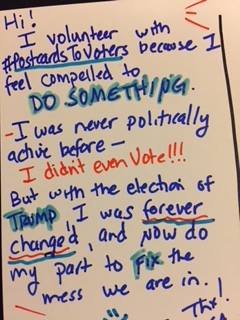 Hi!
I volunteer with
#PostcardsToVoters because I
feel compelled to
DO SOMETHING.
-I was never politically
active before-
I didn't even Vote!!!
But with the election of
TRUMP, I was forever
changed, and NOW do
my part to FIX the
mess we are in.
Thx!